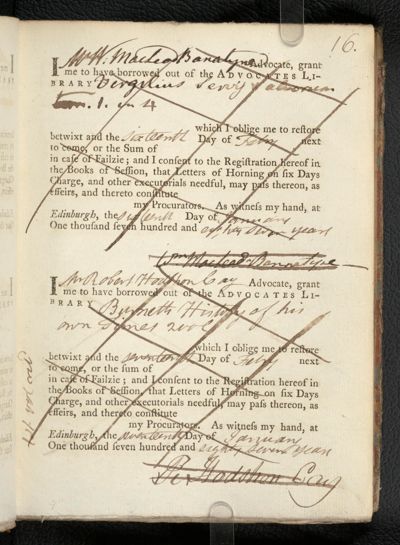 16.
I Mr W. Macleod Banatyne Advocate, grant
me to have borrowed out of the ADVOCATES LI-
BRARY Virgilius
tom. 1. in 4
which I oblige me to restore
betwixt and the sixteenth Day of Feby next
to come, or the Sum of
in case of Failzie; and I consent to the Registration hereof in
the Books of Session, that Letters of Horning on six Days
Charge, and other executorials needful, may pass thereon, as
effeirs, and thereto constitute
my Procurators. As witness my hand, at
Edinburgh, the sixteenth Day of January
One thousand seven hundred and eighty seven years
Wm Macleod Banatyne
I Mr Robert Hodshon Cay Advocate, grant
me to have borrowed out of the ADVOCATES LI-
BRARY Burnetts History of his
own times 2 vol
which I oblige me to restore
betwixt and the seventeenth Day of Feby next
to come, or the sum of
in case of Failzie; and I consent to the Registration hereof in
the Books of Session, that Letters of Horning on six Days
Charge, and other executorials needful, may pass thereon, as
effeirs, and thereto constitute
my Procurators. As witness my hand, at
Edinburgh, the seventeenth Day of January
One thousand seven hundred and eighty seven years
R. Hodshon Cay